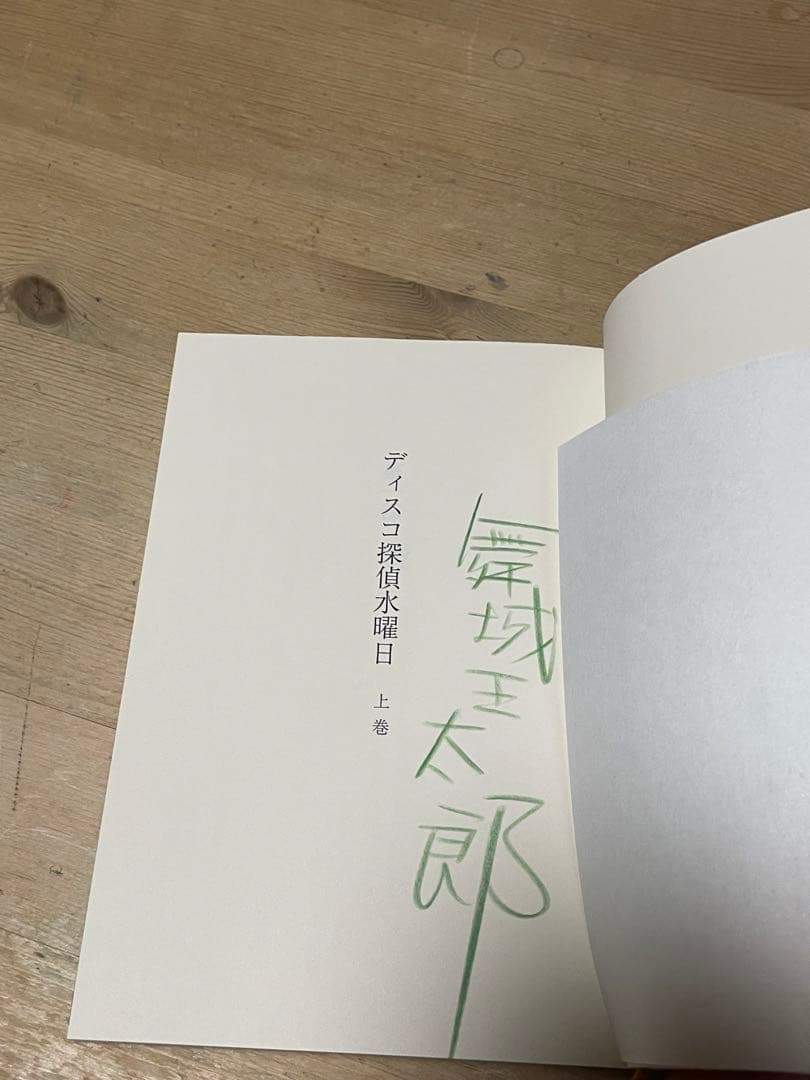 舞城王太郎
ディスコ探偵水曜日 上巻